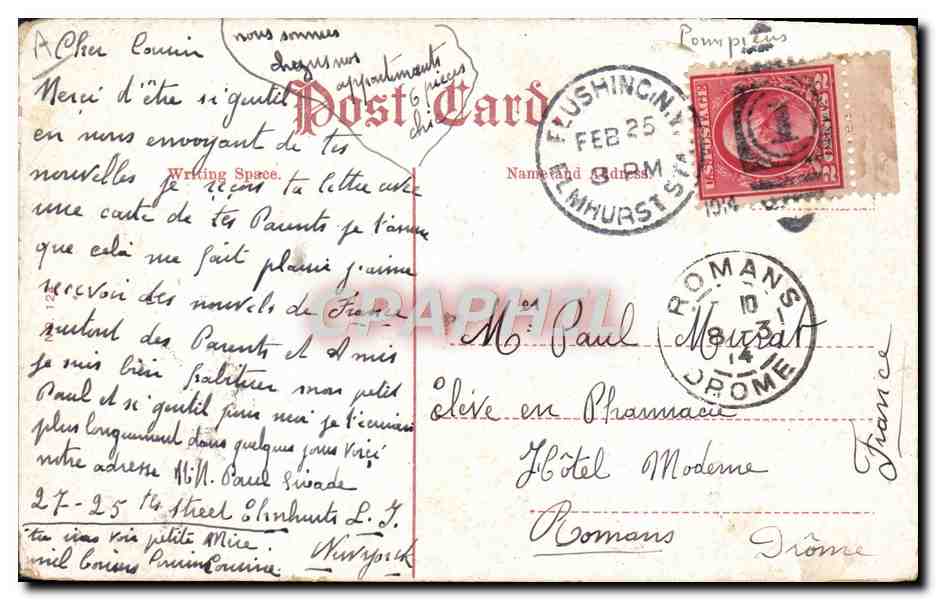 A Cher Cousin
Merci d'être si gentil
en nous envoyant de tes
nouvelles je reçois ta lettre avec
une carte de tes Parents je t'assure
que celà me fait plaisir j'aime
recevoir des nouvels de France
surtout des Parents et Amis
je suis bien mon petit
Paul et si gentil pour moi je t'écrirai
plus longuement dans quelques jours voici
notre adresse Paul
27-25 th street Elmhurts L. I.
Newyork
petite
Cousine
nous sommes
chez nos
appartements
6 pièces
Post Card
Writing Space.
Name and Address.
Pompiers
FLUSHING, N.Y.
FEB 25
8 PM
ELMHURST STA.
1914
U.S. POSTAGE
ROMANS
10
8-3
14
DROME
CPAPHIL
Mr Paul Murat
Elève en Pharmacie
Hôtel Moderne
Romans
Drôme
France